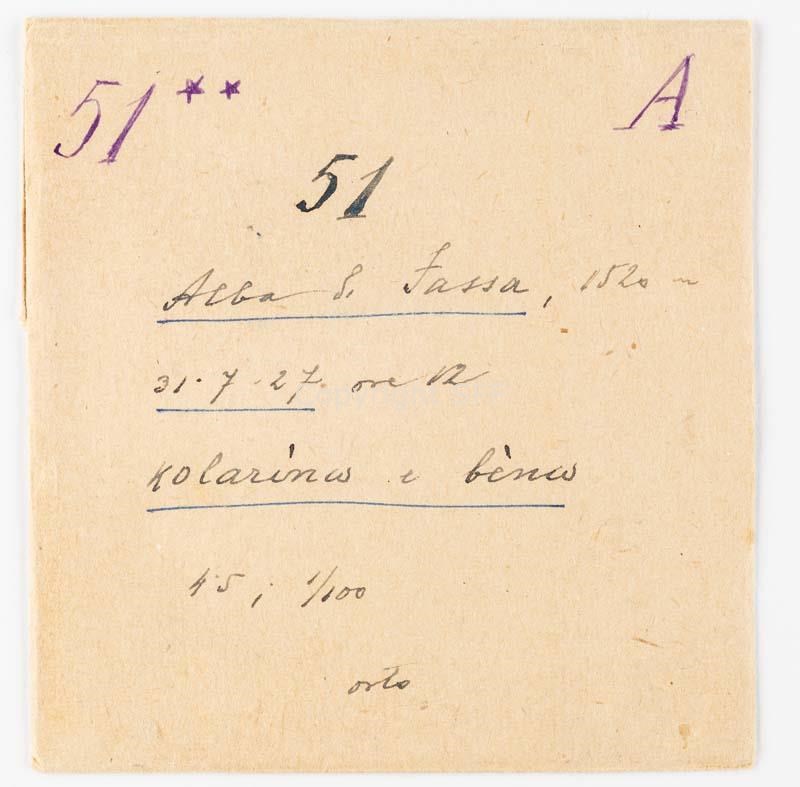 51** A
51
Alba d. Fassa, 1520 m
31.7.27. ore 12
kolarína e bèna
4.5; 1/100
orto